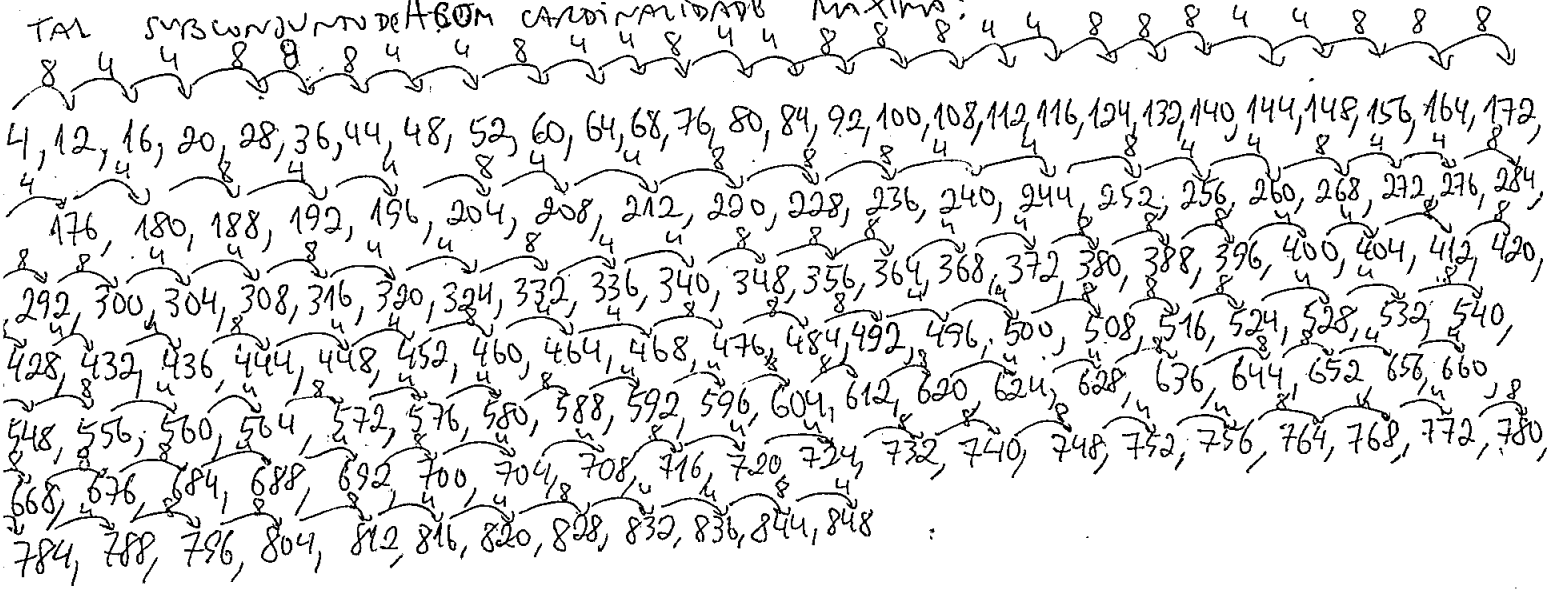 TAL SUBCONJUNTO DE A COM CARDINALIDADE MÁXIMA:
8 4 4 8 8 8 4 4 8 4 4 8 4 4 8 8 8 4 4 8 8 8 4 4 8 8 8
4, 12, 16, 20, 28, 36, 44, 48, 52, 60, 64, 68, 76, 80, 84, 92, 100, 108, 112, 116, 124, 132, 140, 144, 148, 156, 164, 172,
4 4 8 4 4 8 4 4 8 8 8 4 4 8 4 4 8 4 4 8
176, 180, 188, 192, 196, 204, 208, 212, 220, 228, 236, 240, 244, 252, 256, 260, 268, 272, 276, 284,
8 8 4 4 8 4 4 8 4 4 8 8 8 4 4 8 8 8 4 4 8 8
292, 300, 304, 308, 316, 320, 324, 332, 336, 340, 348, 356, 364, 368, 372, 380, 388, 396, 400, 404, 412, 420,
4 4 8 4 4 8 4 4 8 8 8 4 4 8 8 8 4 4 8
428, 432, 436, 444, 448, 452, 460, 464, 468, 476, 484, 492, 496, 500, 508, 516, 524, 528, 532, 540,
8 4 4 8 4 4 8 4 4 8 8 8 4 4 8 8 8 4 4
548, 556, 560, 564, 572, 576, 580, 588, 592, 596, 604, 612, 620, 624, 628, 636, 644, 652, 656, 660,
8 8 8 4 4 8 4 4 8 4 4 8 8 8 4 4 8 4 4 8
668, 676, 684, 688, 692, 700, 704, 708, 716, 720, 724, 732, 740, 748, 752, 756, 764, 768, 772, 780,
4 8 8 8 4 4 8 4 4 8 4
784, 788, 796, 804, 812, 816, 820, 828, 832, 836, 844, 848